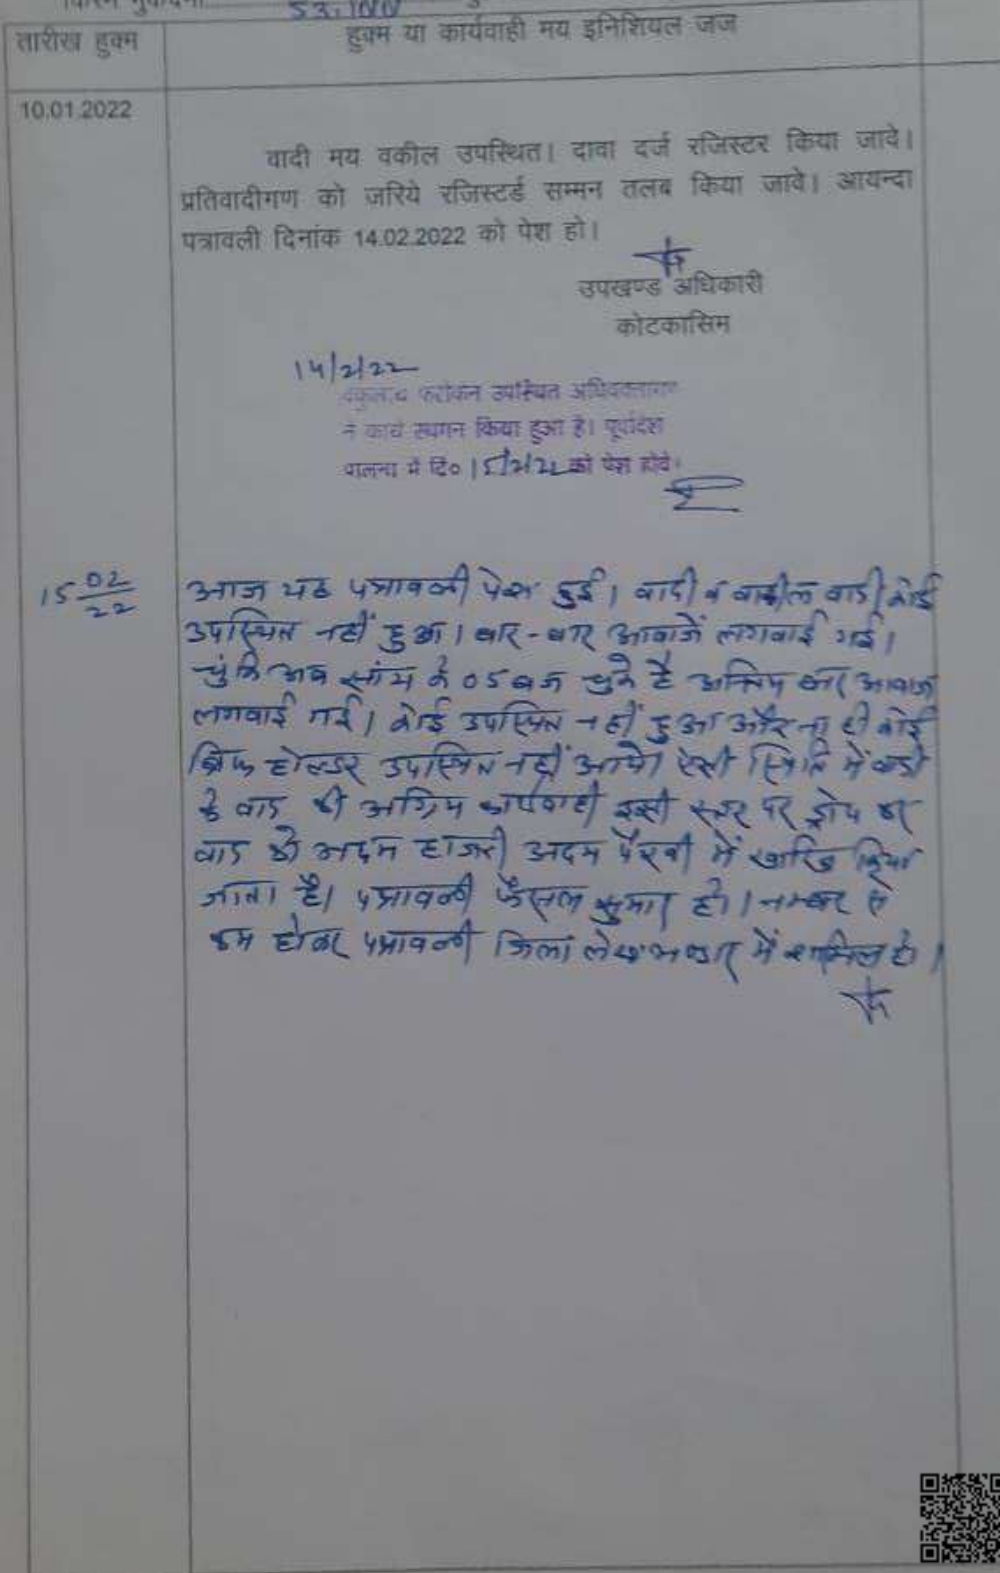 53,
तारीख हुक्म
हुक्म या कार्यवाही मय इनिशियल जज
10.01.2022
वादी मय वकील उपस्थित। दावा दर्ज रजिस्टर किया जावे।
प्रतिवादीगण को जरिये रजिस्टर्ड सम्मन तलब किया जावे। आयन्दा
पत्रावली दिनांक 14.02.2022 को पेश हो।
उपखण्ड अधिकारी
कोटकासिम
14/2/22
उपस्थित
कार्य स्थगन किया हुआ है। पूर्वादेश
पालना में दि० 15/2/22 को पेश होवे।
15 02/22
आज यह पत्रावली पेश हुई। वादी व वकील वादी कोई
उपस्थित नहीं हुआ। बार-बार आवाजें लगवाई गई।
चुंकि अब सांय के 05 बज चुके है अन्तिम बार आवाज
लगवाई गई। कोई उपस्थित नहीं हुआ और ना ही कोई
ब्रिफ होल्डर उपस्थित नहीं आये। ऐसी स्थिति में वादी
के वाद की अग्रिम कार्यवाही इसी स्तर पर ड्रोप कर
वाद को अदम हाजरी अदम पैरवी में खारिज किया
जाता है। पत्रावली फैसल शुमार हो। नम्बर से
कम होकर पत्रावली जिला लेख भण्डार में शामिल हो।